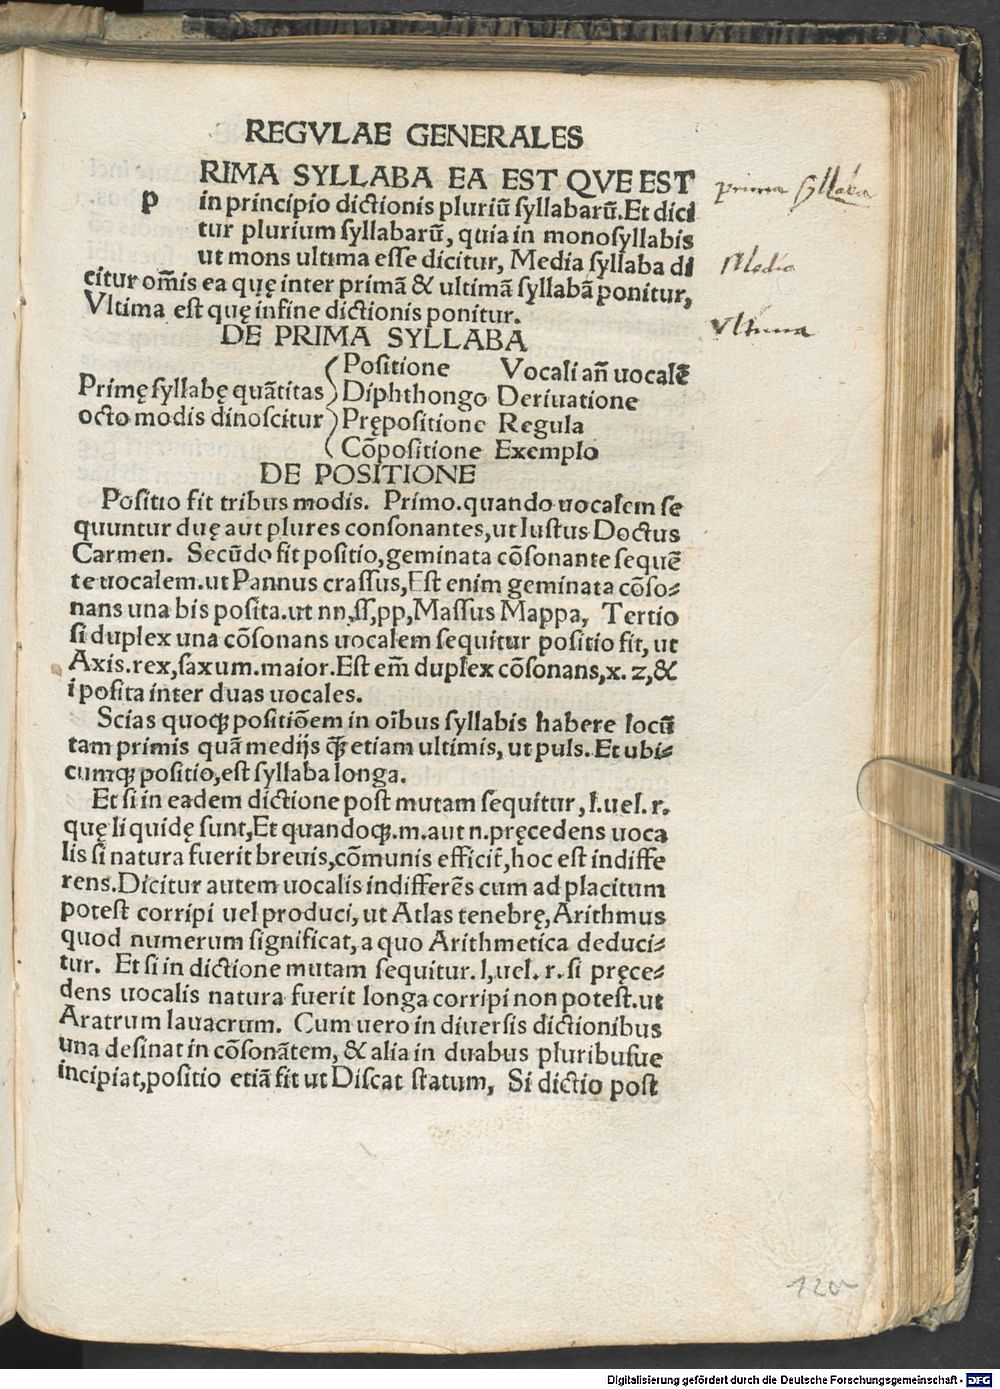 REGVLAE GENERALES
RIMA SYLLABA EA EST QVE EST
p in principio dictionis pluriū ſyllabarū.Et dici
tur plurium ſyllabarū, quia in monoſyllabis
ut mons ultima eſſe dicitur, Media ſyllaba di
citur om̄is ea quę inter primā & ultimā ſyllabā ponitur,
Vltima est quę infine dictionis ponitur.
DE PRIMA SYLLABA
Poſitione Vocali añ uocalē
Primę ſyllabę quātitas Diphthongo Deriuatione
octo modis dinoſcitur Prępoſitione Regula
Cōpoſitione Exemplo
DE POSITIONE
Poſitio fit tribus modis. Primo.quando uocalem ſe
quuntur duę aut plures conſonantes,ut Iuſtus Doctus
Carmen. Secūdo fit poſitio,geminata cōſonante ſequē
te uocalem.ut Pannus craſſus,Eſt enim geminata cōſo-
nans una bis poſita.ut nn,ſſ,pp,Maſſus Mappa, Tertio
ſi duplex una cōſonans uocalem ſequitur poſitio fit, ut
Axis.rex,ſaxum.maior.Eſt em̄ duplex cōſonans,x. z,&
i poſita inter duas uocales.
Scias quoqꝫ poſitiōem in oībus ſyllabis habere locū
tam primis quā medijs q̄ꝫ etiam ultimis, ut puls. Et ubi-
cumqꝫ poſitio,eſt ſyllaba longa.
Et ſi in eadem dictione poſt mutam ſequitur, l.uel. r.
quę liquidę ſunt,Et quandoqꝫ.m.aut n.pręcedens uoca
lis ſi natura fuerit breuis,cōmunis efficit̄,hoc eſt indiffe
rens.Dicitur autem uocalis indifferēs cum ad placitum
poteſt corripi uel produci, ut Atlas tenebrę,Arithmus
quod numerum ſignificat, a quo Arithmetica deduci-
tur. Et ſi in dictione mutam ſequitur. l,uel. r. ſi pręce-
dens uocalis natura fuerit longa corripi non poteſt.ut
Aratrum lauacrum. Cum uero in diuerſis dictionibus
una deſinat in cōſonātem, & alia in duabus pluribuſue
incipiat,poſitio etiā fit ut Diſcat ſtatum, Si dictio poſt
prima ſyllaba
Media
Vltima
120
Digitalisierung gefördert durch die Deutsche Forschungsgemeinschaft - DFG